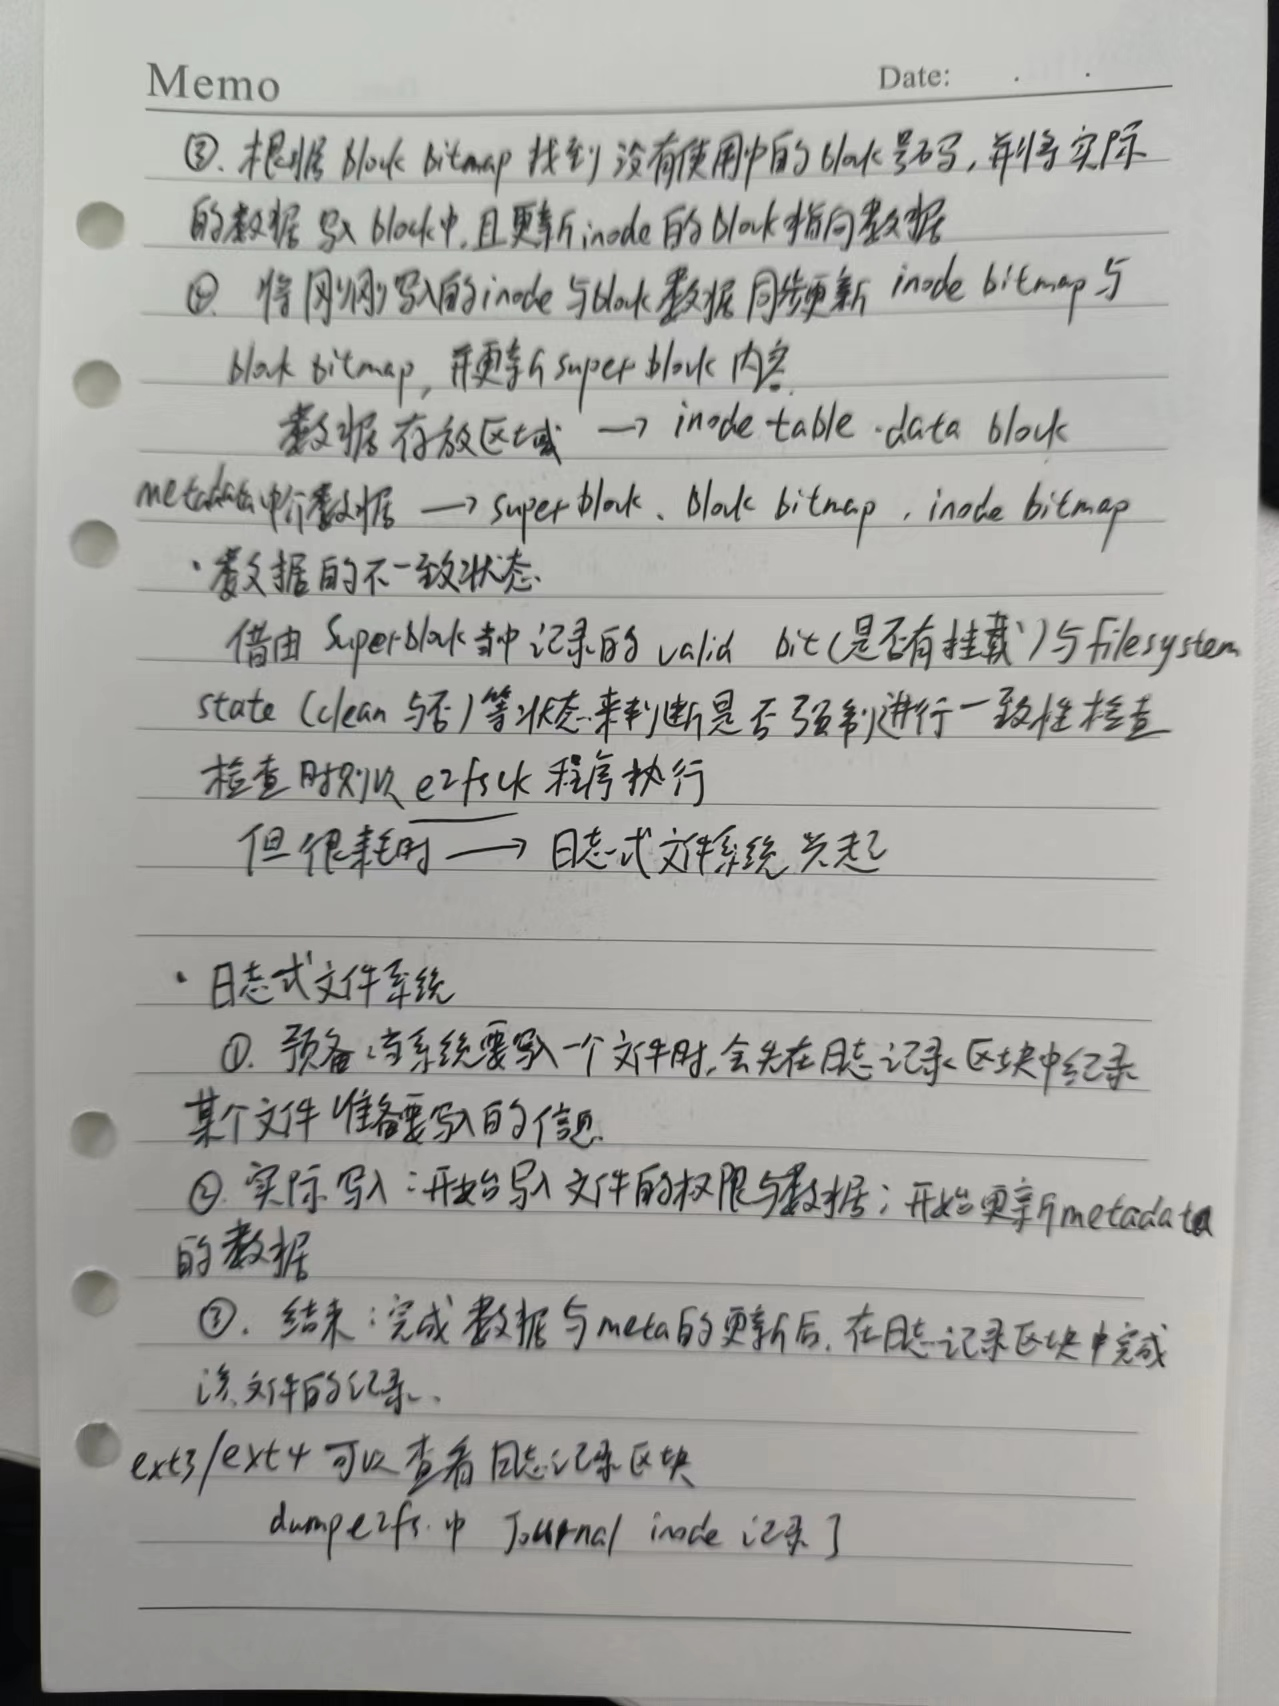 Memo Date: . .
③. 根据 block bitmap 找到没有使用中的 block 号码, 并将实际
的数据写入 block中, 且更新inode的block指向数据
④ 将刚刚写入的inode与block数据同步更新 inode bitmap与
block bitmap, 并更新super block 内容
数据存放区域 → inode table . data block
metadata中介数据 → super block 、 block bitmap , inode bitmap
· 数据的不一致状态.
借由 Superblock 当中记录的 valid bit (是否有挂载) 与 filesystem
state (clean 与否) 等状态来判断是否强制进行一致性检查
检查时则以 e2fsck 程序执行
但很耗时 → 日志式文件系统兴起
· 日志式文件系统
①. 预备:当系统要写入一个文件时,会先在日志记录区块中纪录
某个文件准备要写入的信息.
②. 实际写入:开始写入文件的权限与数据;开始更新metadata
的数据
③. 结束:完成数据与meta的更新后,在日志记录区块中完成
该文件的纪录.
ext3/ext4 可以查看日志记录区块
dumpe2fs 中 Journal inode 记录了